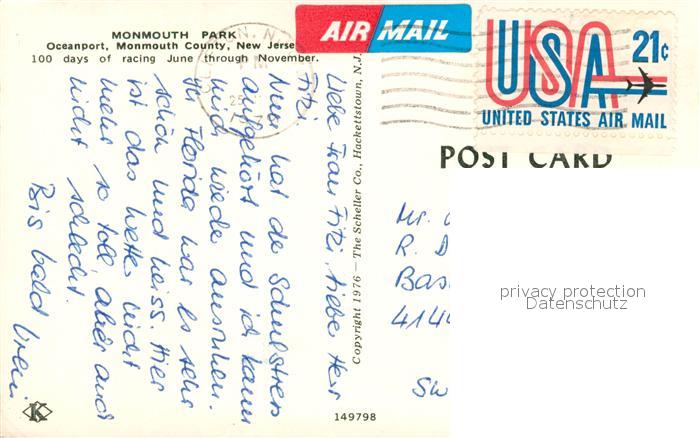 MONMOUTH PARK
Oceanport, Monmouth County, New Jerse
100 days of racing June through November.
AIR MAIL
USA 21¢
UNITED STATES AIR MAIL
POST CARD
Liebe Frau Fitzi, lieber Herr
Fitzi
Nun hat de Schulstress
aufgehört und ich kann
mich wieder ausruhen.
In Florida war es sehr
schön und heiss. Hier
ist das Wetter nicht
mehr so toll, aber auch
nicht schlecht.
Bis bald
Copyright 1976—The Scheller Co., Hackettstown, N.J.
Mr.
R. D
Bas
414
Sw
privacy protection
Datenschutz
K
149798